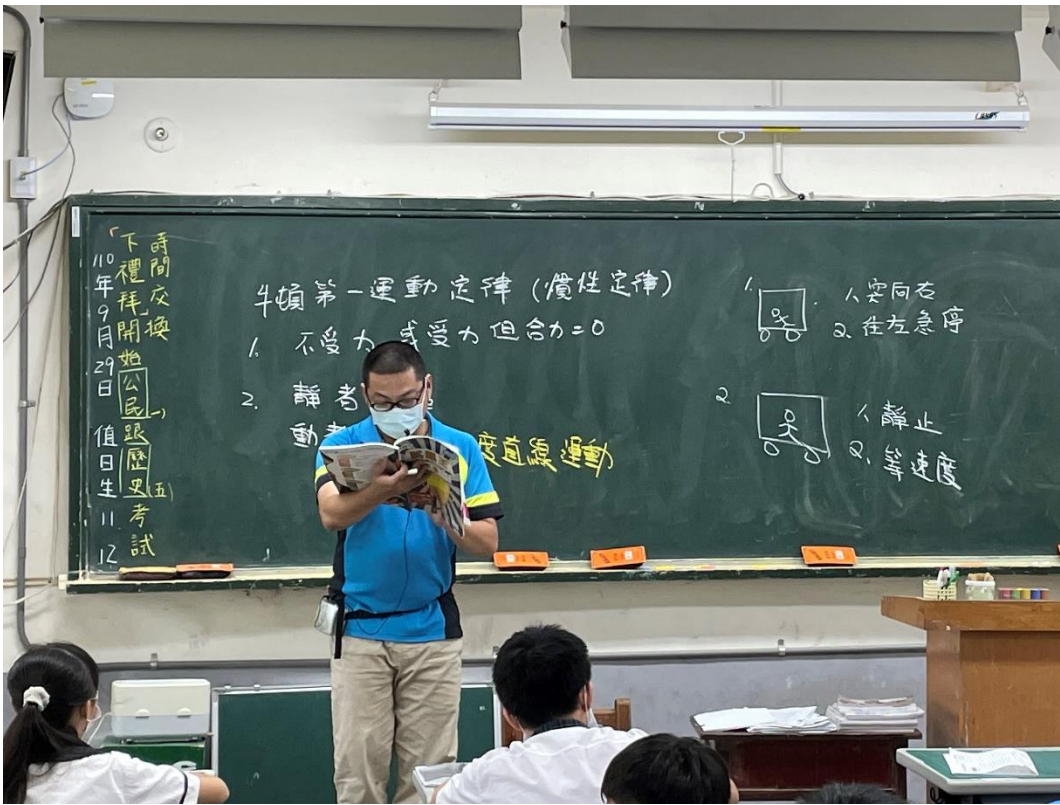 110年9月29日 值日生 11 12
「下禮拜」開始公民(一)跟歷史(五)考試
時間交換
牛頓第一運動定律(慣性定律)
1. 不受力 或受力但合力=0
2. 靜者
動者
度直線運動
1.
1.突向右
2.往左急停
2
1.靜止
2.等速度